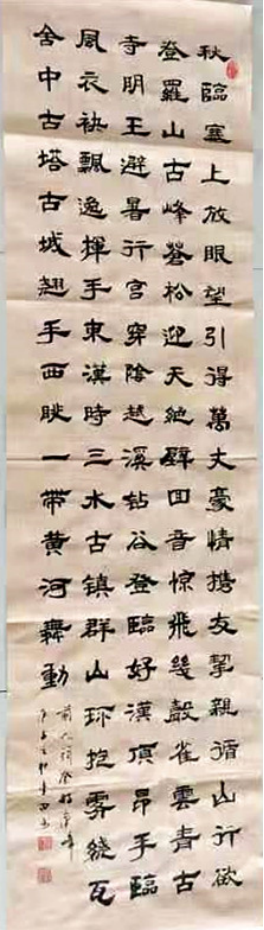 秋臨塞上放眼望引得萬丈豪情攜友挈親循山行欲
登羅山古峰蒼松迎天絶壁回音惊飛幾敲雀雲青古
寺明王避暑行宫穿陰越溪钻谷登臨好漢頂昂手臨
風衣袂飄逸揮手東漢時三水古镇群山环抱雾绕瓦
舍中古塔古城翘手西眺一帶黄河舞動